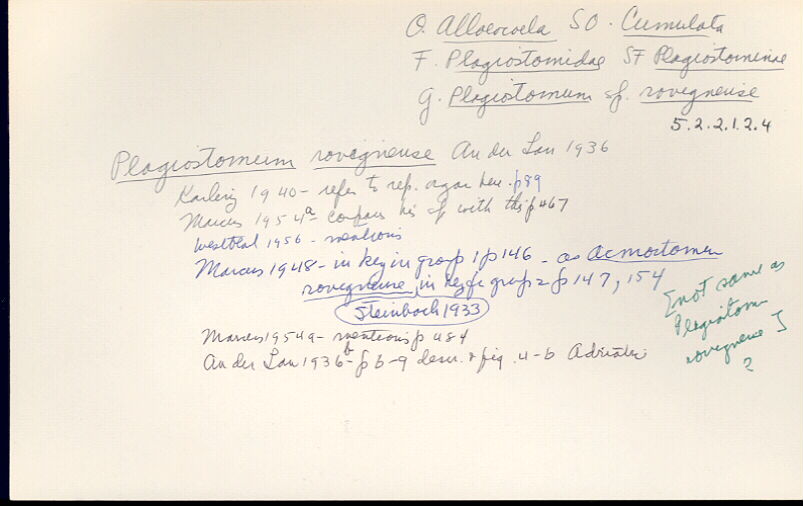 O. Alloeocoela SO. Cumulata
F. Plagiostomidae SF Plagiostominae
G. Plagiostomum sp. rovegneuse
5.2.2.1.2.4
Plagiostomum rovegneuse An der Lan 1936
Karling 1940 - refer to rep. organ here. p89
Marcus 1954a compares his sp with this p467
Westblad 1956 - mentions
Marcus 1948 - in key in group 1 p146 - as Acmostomum
rovegneuse, in key for group 2 p147, 154
Steinbock 1933
Marcus 1954a - mentions p 484
An der Lan 1936b - p 6-9 descr. & fig. 4-6 Adriatic
[not same as
Plagiostom
rovegneuse]
?